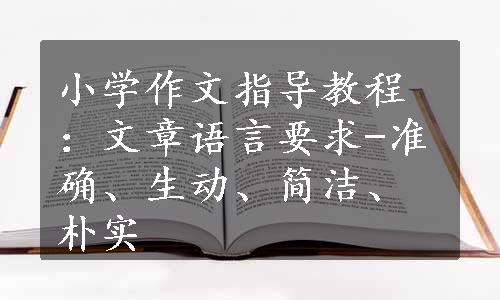 小学作文指导教程
：文章语言要求-准
确、生动、简洁、
朴实